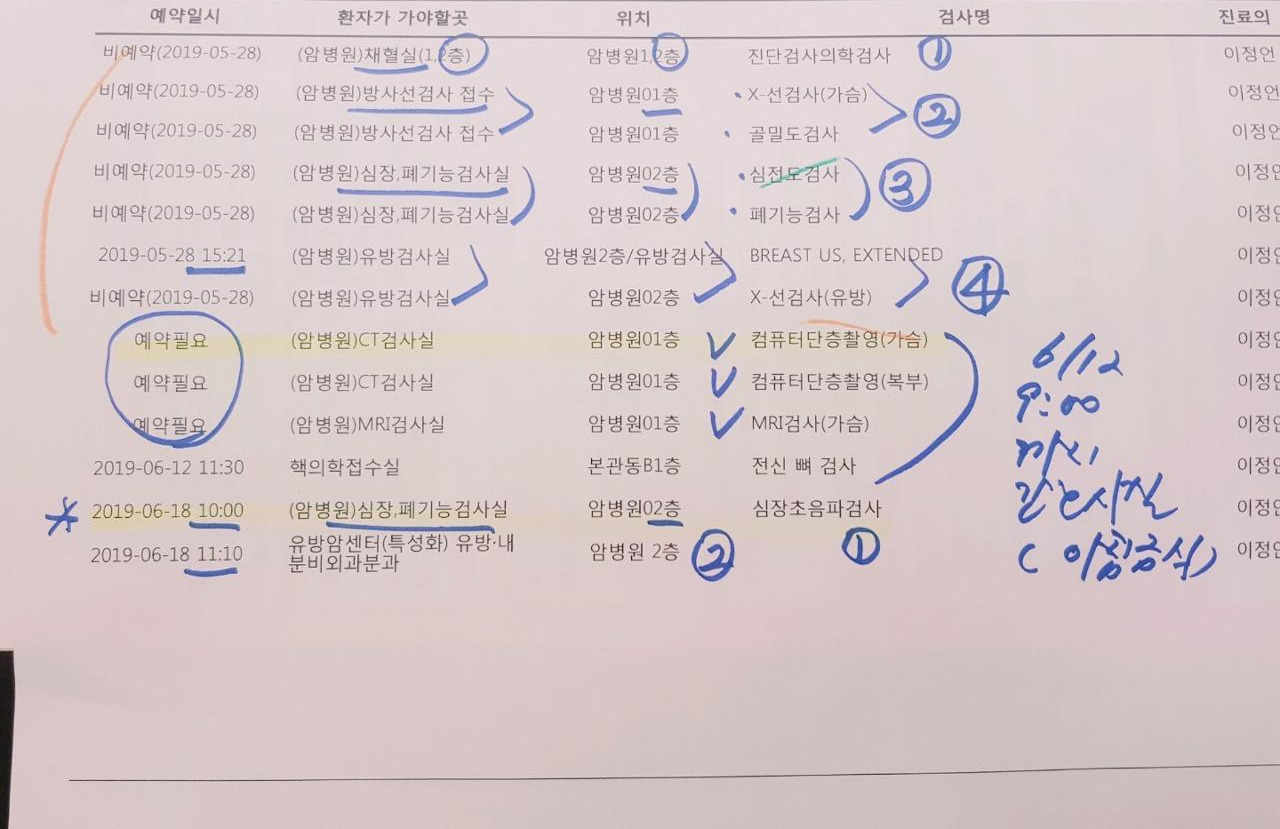 예약일시 환자가 가야할곳 위치 검사명 진료의
비예약(2019-05-28) (암병원)채혈실(1,2층) 암병원1,2층 진단검사의학검사 ① 이정언
비예약(2019-05-28) (암병원)방사선검사 접수 암병원01층 X-선검사(가슴) 이정언
②
비예약(2019-05-28) (암병원)방사선검사 접수 암병원01층 골밀도검사 이정언
비예약(2019-05-28) (암병원)심장,폐기능검사실 암병원02층 심전도검사 이정언
③
비예약(2019-05-28) (암병원)심장,폐기능검사실 암병원02층 폐기능검사 이정언
2019-05-28 15:21 (암병원)유방검사실 암병원2층/유방검사실 BREAST US, EXTENDED 이정언
④
비예약(2019-05-28) (암병원)유방검사실 암병원02층 X-선검사(유방) 이정언
예약필요 (암병원)CT검사실 암병원01층 컴퓨터단층촬영(가슴) 이정언
예약필요 (암병원)CT검사실 암병원01층 컴퓨터단층촬영(복부) 이정언
예약필요 (암병원)MRI검사실 암병원01층 MRI검사(가슴) 이정언
2019-06-12 11:30 핵의학접수실 본관동B1층 전신 뼈 검사 이정언
2019-06-18 10:00 (암병원)심장,폐기능검사실 암병원02층 심장초음파검사 이정언
①
2019-06-18 11:10 유방암센터(특성화) 유방·내 암병원 2층 ② 이정언
분비외과분과
6/12
9:00
까지
(아침금식)